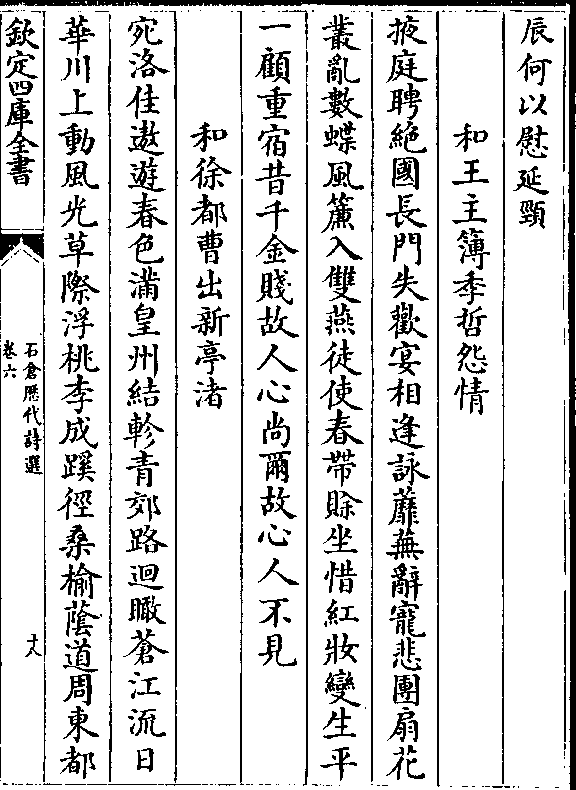 辰何以慰延頸
和王主簿季哲怨情
掖庭聘絶國長門失歡宴相逢詠蘼蕪辭寵悲團扇花
叢亂數蝶風簾入雙燕徒使春帶賖坐惜紅妝變生平
一顧重宿昔千金賤故人心尚爾故心人不見
和徐都曹出新亭渚
宛洛佳遨遊春色滿皇州結軫青郊路迴瞰蒼江流日
華川上動風光草際浮桃李成蹊徑桑榆蔭道周東都
欽定四庫全書
石倉歷代詩選
卷六
十八